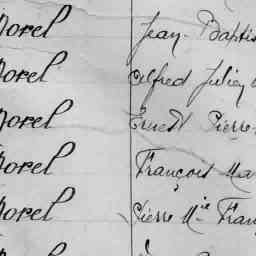 Morel Jean-Baptis
Morel Alfred Julien
Morel Ernest Pierre
Morel François Ma
Morel Pierre Mie Fran